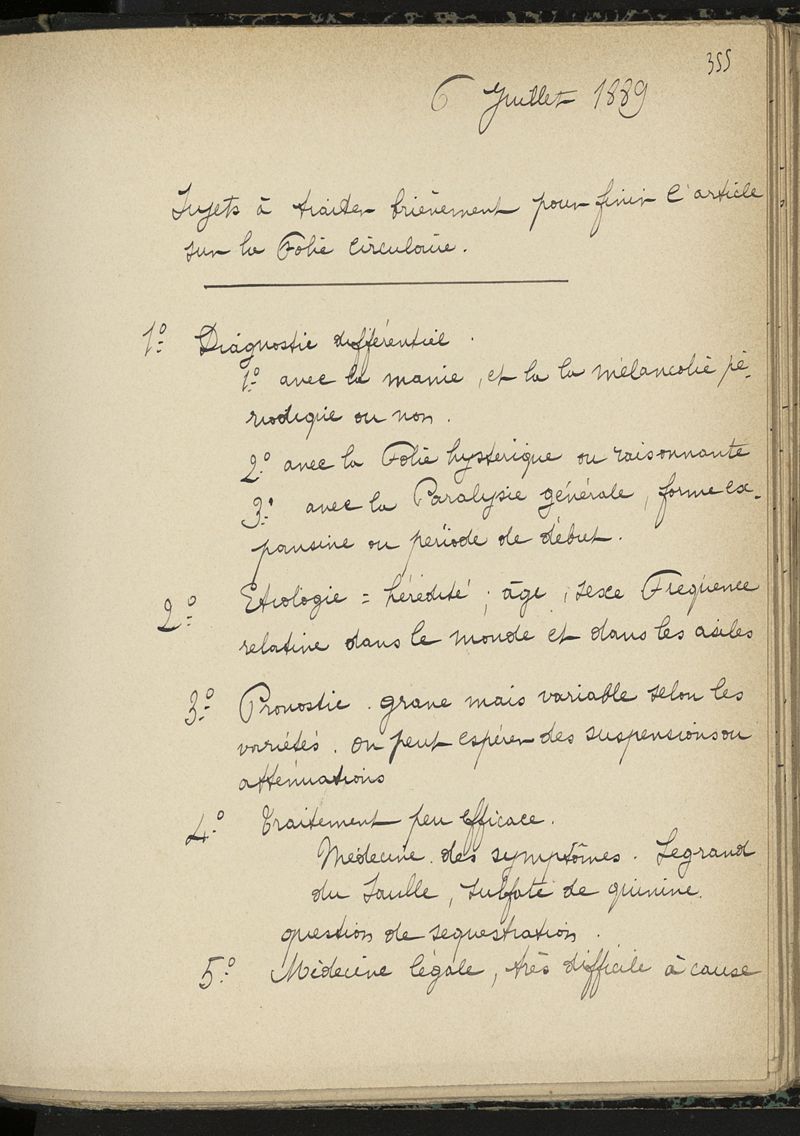 355
6 Juillet 1889
Sujets à traiter brièvement pour finir l'article
sur la Folie circulaire.
1º Diagnostic différentiel.
1º avec la manie, et la la mélancolie pé-
riodique ou non.
2º avec la Folie hystérique ou raisonnante
3º avec la Paralysie générale, forme ex-
pansive ou période de début.
2º Etiologie = hérédité; âge, sexe Fréquence
relative dans le monde et dans les asiles
3º Pronostic. grave mais variable selon les
variétés. on peut espérer des suspensions ou
atténuations
4º Traitement peu efficace.
Médecine des symptômes. Legrand
du Saulle, sulfate de quinine.
question de sequestration.
5º Médecine légale, très difficile à cause